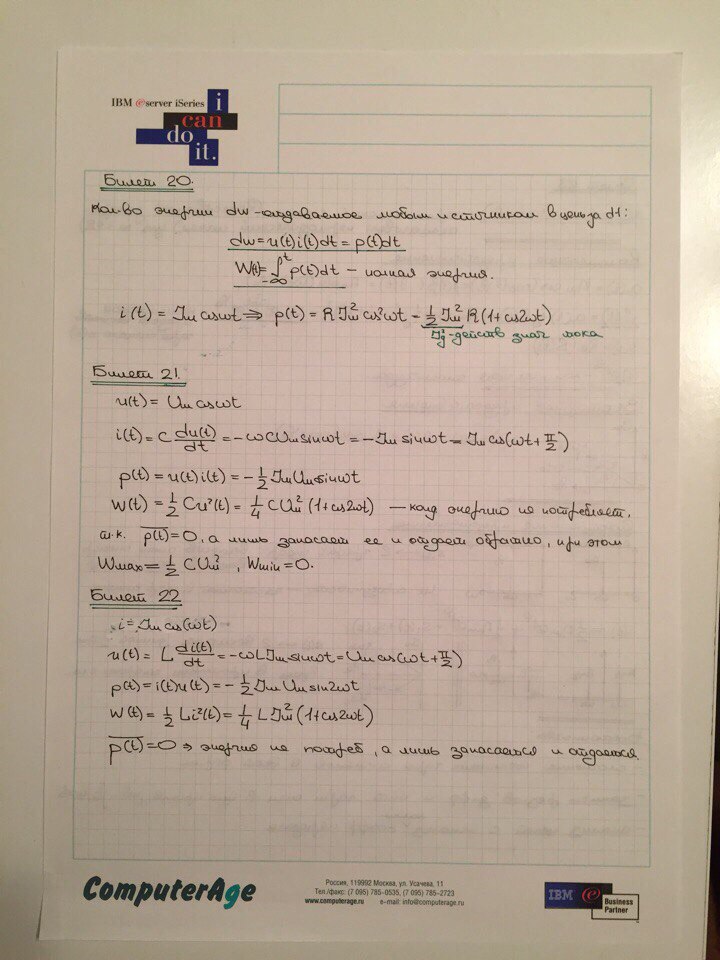 IBM @server iSeries
i
can
do
it.
Билет 20.
Кол-во энергии dw-отдаваемое любым источником в цепь за dt:
dw = u(t)i(t)dt = p(t)dt
W(t)=∫_{-∞}^{t} p(t)dt – полная энергия.
i(t) = Jm cosωt ⇒ p(t) = R Jm² cos²ωt = 1/2 Jm² R(1+cos2ωt)
Jд²-действ знач тока
Билет 21.
u(t) = Um cosωt
i(t) = C du(t)/dt = -ωCUm sinωt = -Jm sinωt = Jm cos(ωt+π/2)
p(t) = u(t)i(t) = -1/2 JmUm sinωt
W(t) = 1/2 Cu²(t) = 1/4 CUm² (1+cos2ωt) — конд энергию не потребляет,
т.к. p(t)=0, а лишь запасает ее и отдает обратно, при этом
Wmax = 1/2 CUm², Wmin=0.
Билет 22
i = Jm cos(ωt)
u(t) = L di(t)/dt = -ωLJm sinωt = Um cos(ωt+π/2)
p(t) = i(t)u(t) = -1/2 JmUm sin2ωt
W(t) = 1/2 Li²(t) = 1/4 LJm² (1+cos2ωt)
p(t)=0 ⇒ энергия не потреб, а лишь запасается и отдается
ComputerAge
Россия, 119992 Москва, ул. Усачева, 11
Тел./факс: (7 095) 785-0535, (7 095) 785-2723
www.computerage.ru e-mail: info@computerage.ru
IBM @
Business
Partner